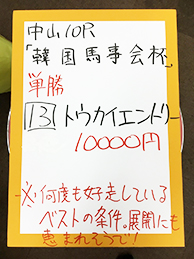 中山10R
「韓国馬事会杯」
単勝
13 トウカイエントリー
10000円
※何度も好走している
ベストの条件。展開にも
恵まれそうで!